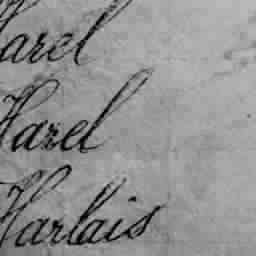 Harel
Hazel
Harlais